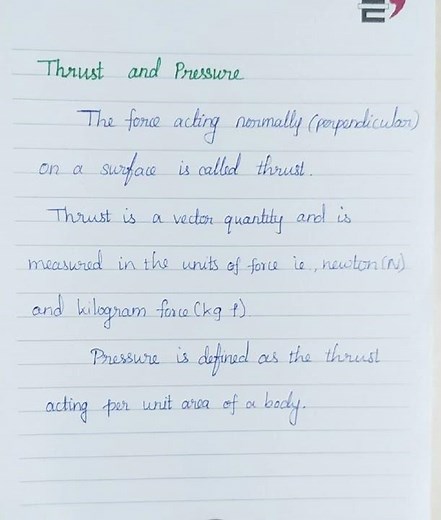 Thrust and Pressure
The force acting normally (perpendicular)
on a surface is called thrust.
Thrust is a vector quantity and is
measured in the units of force ie, newton (N)
and kilogram force (kg f)
Pressure is defined as the thrust
acting per unit area of a body.